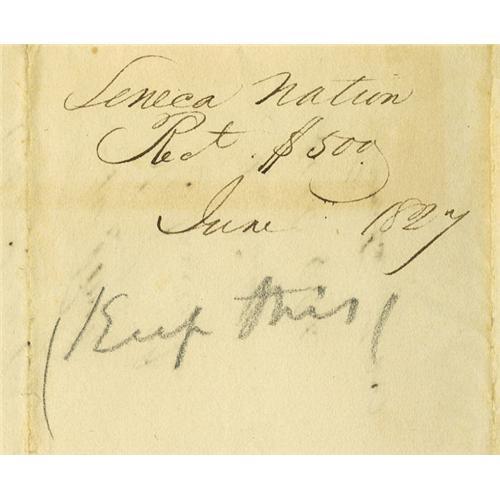 Seneca Nation
Rect. $500.
June 1827
(Keep this(